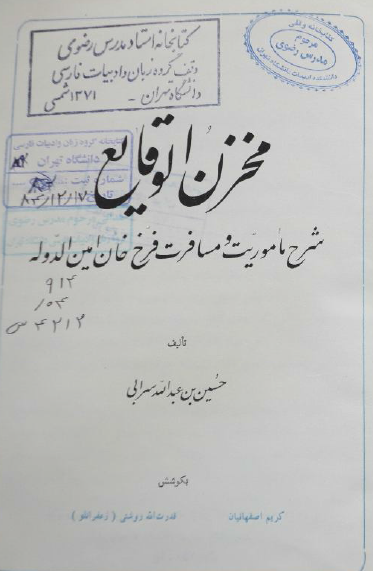 کتابخانه استاد مدرس رضوی
وقف گروه زبان و ادبیات فارسی
دانشگاه تهران - ۱۳۷۱ شمسی
کتابخانه وقفی
مرحوم
مدرس رضوی
کتابخانه گروه زبان و ادبیات فارسی
دانشگاه تهران
شماره ثبت
۸۴/۱۲/۱۷
مخزن الوقایع
شرح مأموریت و مسافرت فرخ خان امین الدوله
۹۱۴
/۰۴
س ۴۲۱۴
تألیف
حسین بن عبدالله سرابی
بکوشش
کریم اصفهانیان قدرت الله روشنی (زعفرانلو)